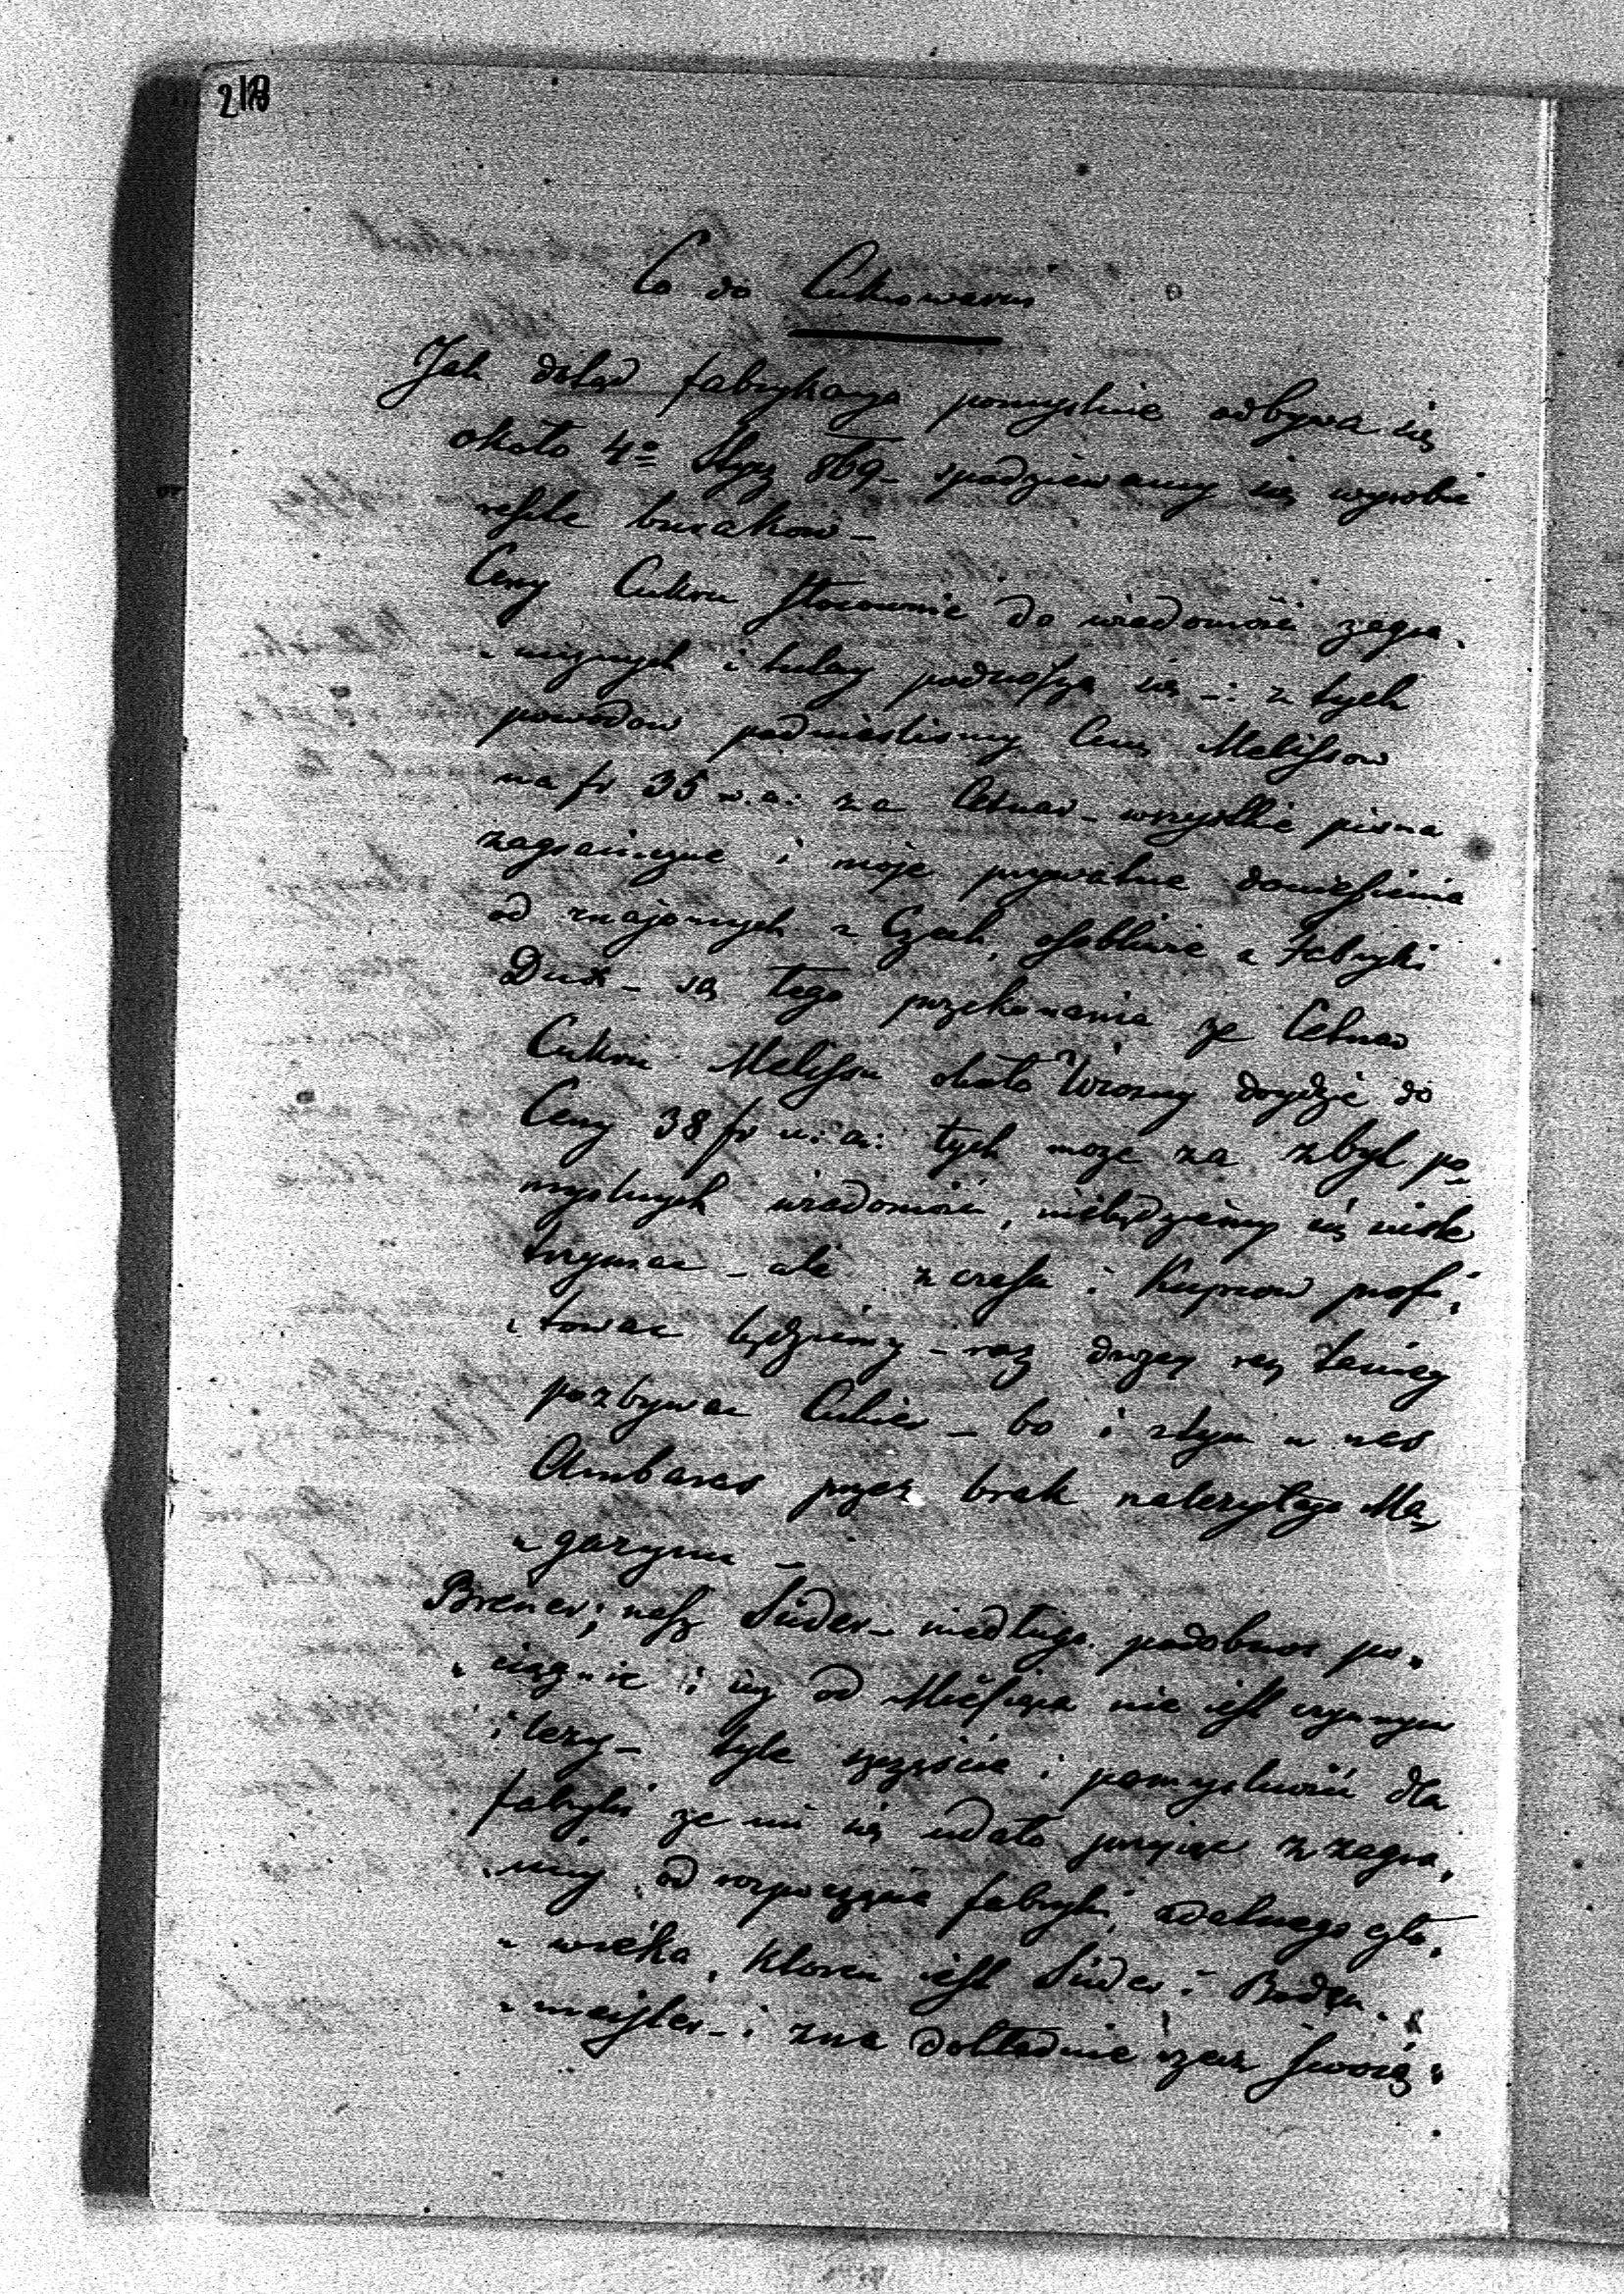 218
Co do Cukrowarni
Jak dotąd fabrykacya pomyslnie odbywa się
około 4º Stycz 869 – spodziewamy się wyrobić
resztę burakow –
Ceny Cukru stosownie do wiadomości zagra„
„nicznych i tutay podnoszą się –: z tych
powodow podnieslismy Cenę Melissow
na fr 35 w. a: za Cetnar – wszystkie pisma
zagraniczne i moje prywatne doniesienia
od znajomych z Czech, osobliwie z Fabryki
Dux – są tego przekonania ze Cetnar
Cukru Melissu około Wiosny doydzie do
Ceny 38 fr w: a: tych moze za zbyt po„
myslnych wiadomości, niebędziemy się
trzymac – ale z czasu i Kupcow profi„
„towac będziemy – raz drozey raz taniey
pozbywac Cukier – bo i z tym u nas
Ambaras przez brak nalezytego Ma„
„gazynu –
Brener; nasz Sieder – niedługo podobnos po„
„ciągnie i juz od Miesiąca nie jest czynnym
i lezy – tyle szczęścia i pomyslności dla
fabryki ze mi się udało przyjąc z zagra„
„nicy od rozpoczęcia fabryki, zdatnego czło„
„wieka, ktoren jest Sieder i Boden„
„meister – i zna dokładnie rzecz swoią„